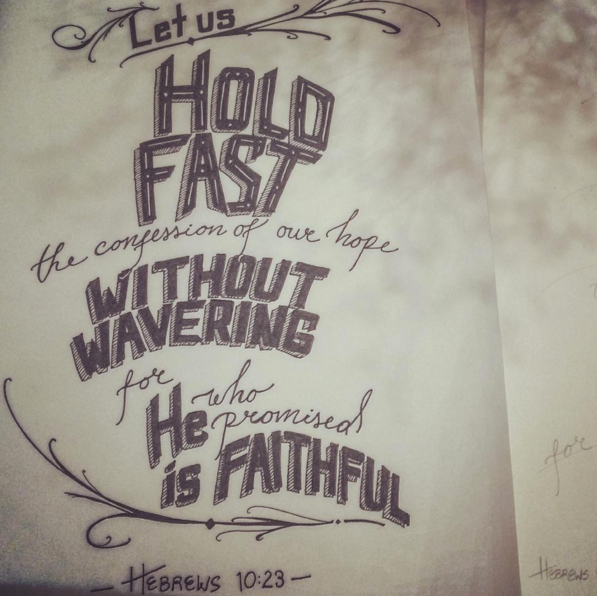 Let us
HOLD
FAST
the confession of our hope
WITHOUT
WAVERING
for
He who
promised
is FAITHFUL
— HEBREWS 10:23 —
for
HEBREWS